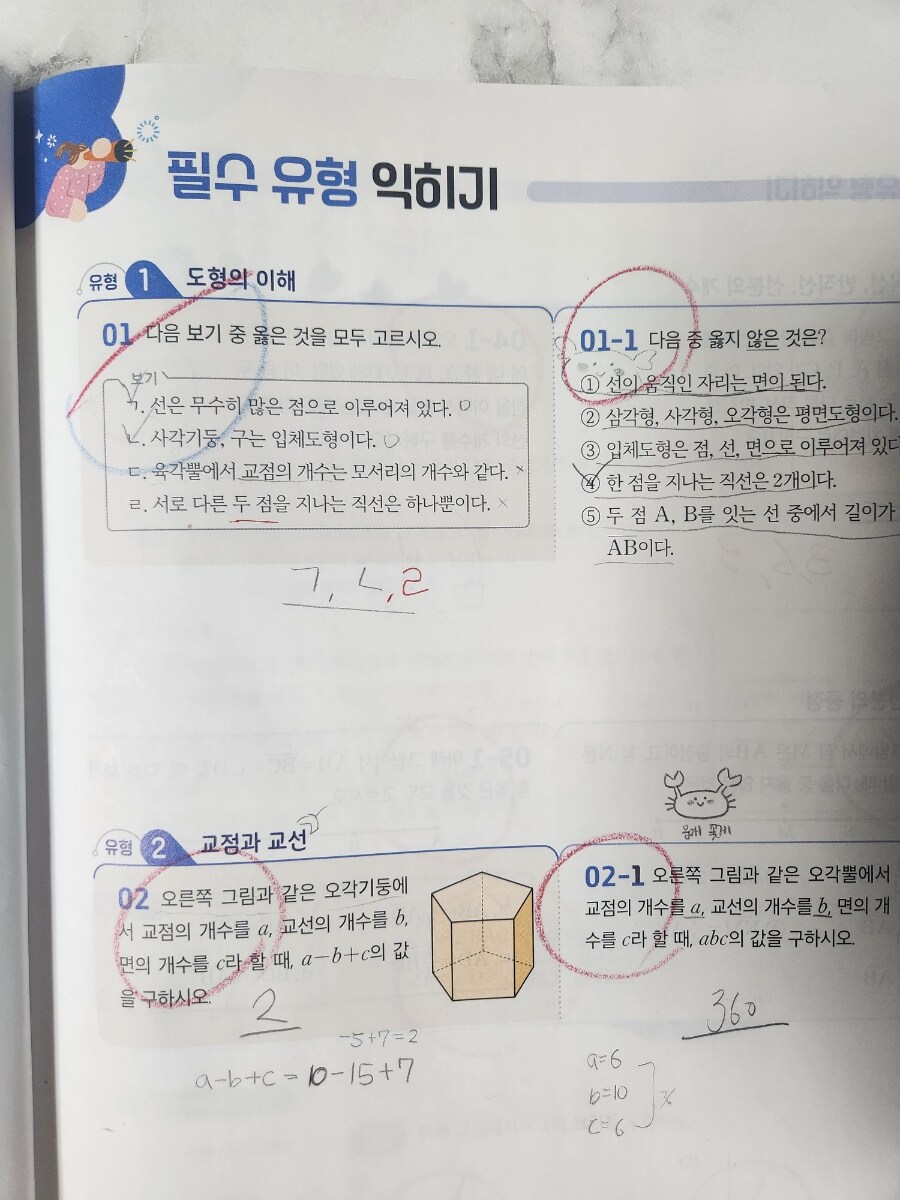 필수 유형 익히기
유형 1 도형의 이해
01 다음 보기 중 옳은 것을 모두 고르시오.
보기
ㄱ. 선은 무수히 많은 점으로 이루어져 있다. ○
ㄴ. 사각기둥, 구는 입체도형이다. ○
ㄷ. 육각뿔에서 교점의 개수는 모서리의 개수와 같다. ×
ㄹ. 서로 다른 두 점을 지나는 직선은 하나뿐이다. ×
ㄱ, ㄴ, ㄹ
01-1 다음 중 옳지 않은 것은?
① 선이 움직인 자리는 면이 된다.
② 삼각형, 사각형, 오각형은 평면도형이다.
③ 입체도형은 점, 선, 면으로 이루어져 있다
④ 한 점을 지나는 직선은 2개이다.
⑤ 두 점 A, B를 잇는 선 중에서 길이가
AB이다.
유형 2 교점과 교선
02 오른쪽 그림과 같은 오각기둥에
서 교점의 개수를 a, 교선의 개수를 b,
면의 개수를 c라 할 때, a-b+c의 값
을 구하시오.
2
-5+7=2
a-b+c=10-15+7
꽃게
02-1 오른쪽 그림과 같은 오각뿔에서
교점의 개수를 a, 교선의 개수를 b, 면의 개
수를 c라 할 때, abc의 값을 구하시오.
360
a=6
b=10
c=6